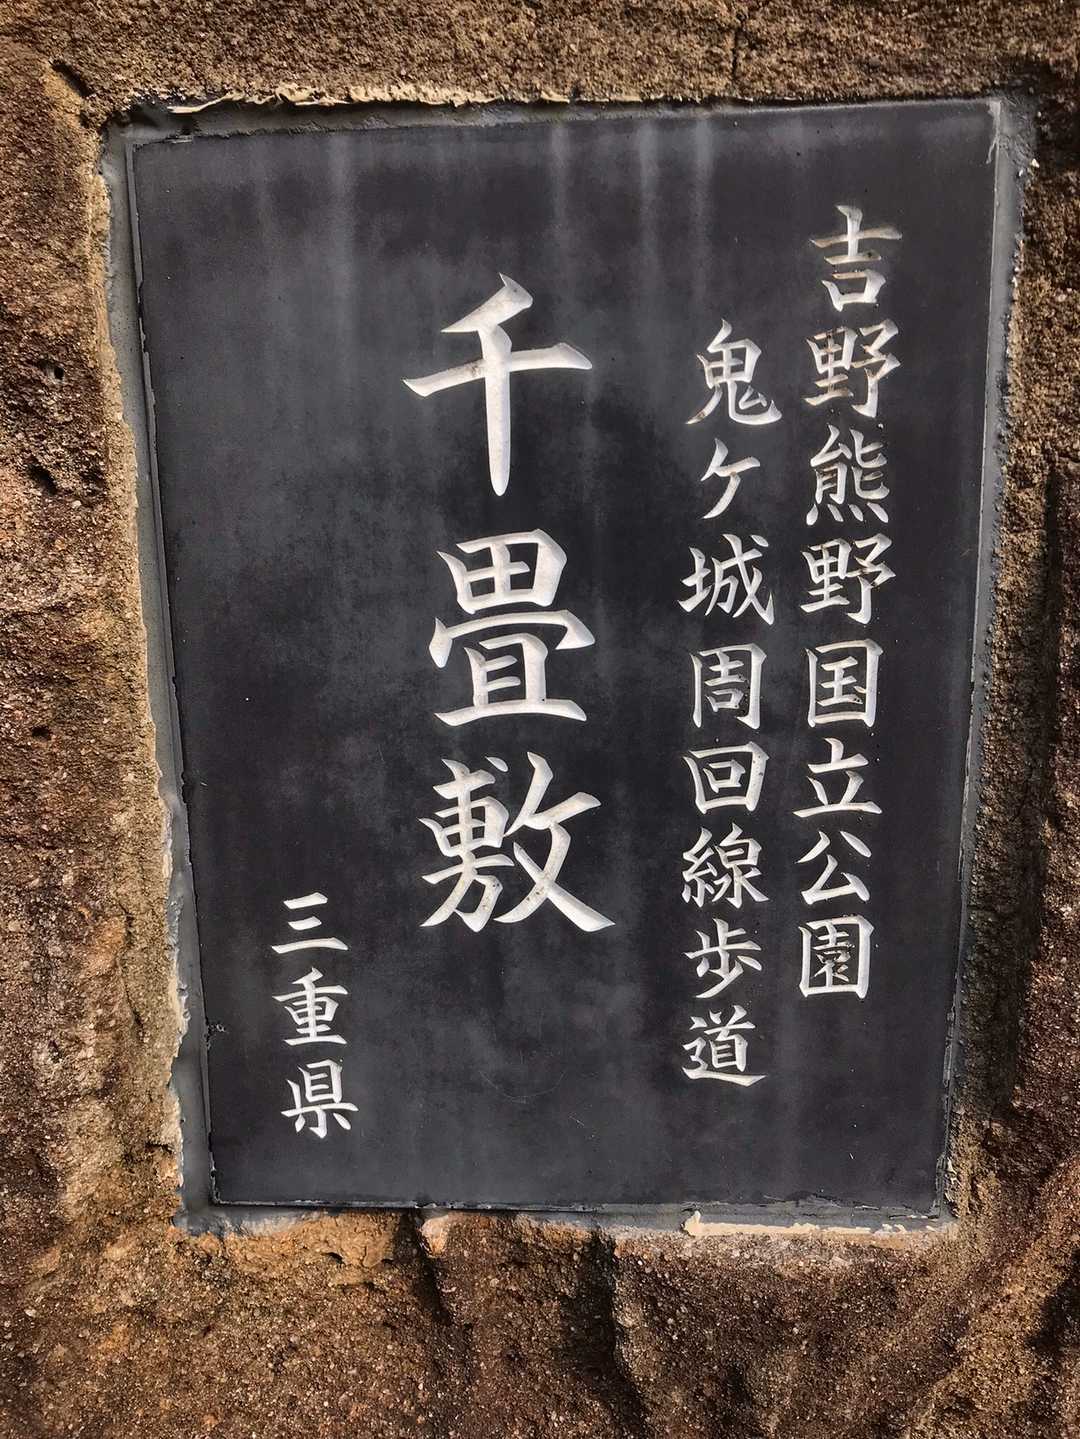 吉野熊野国立公園
鬼ケ城周回線歩道
千畳敷
三重県